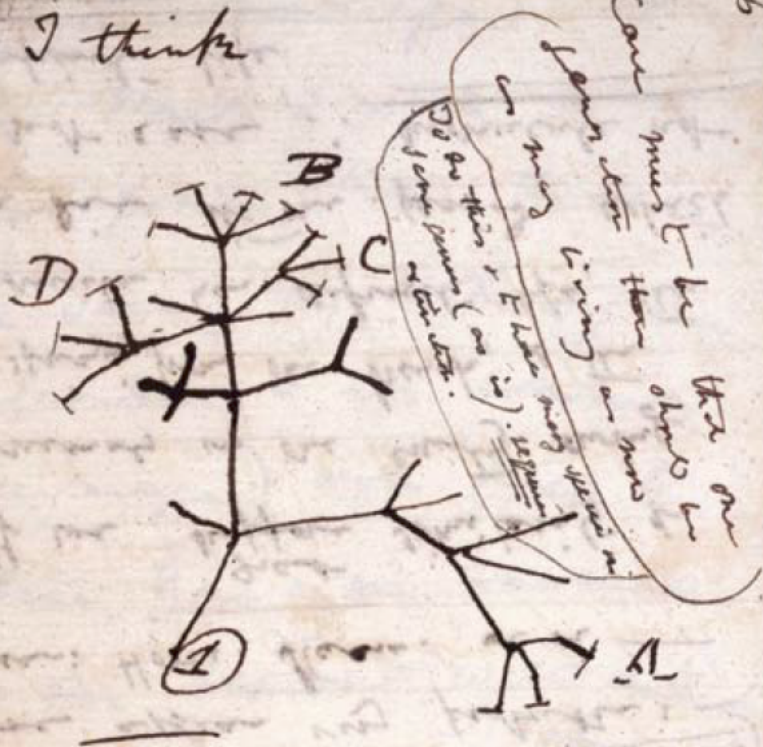 I think
Case must be that one
generation then should be
as many living as now
To do this & to have many species in
same genus (as is). requires
extinction.
B
C
D
1
A